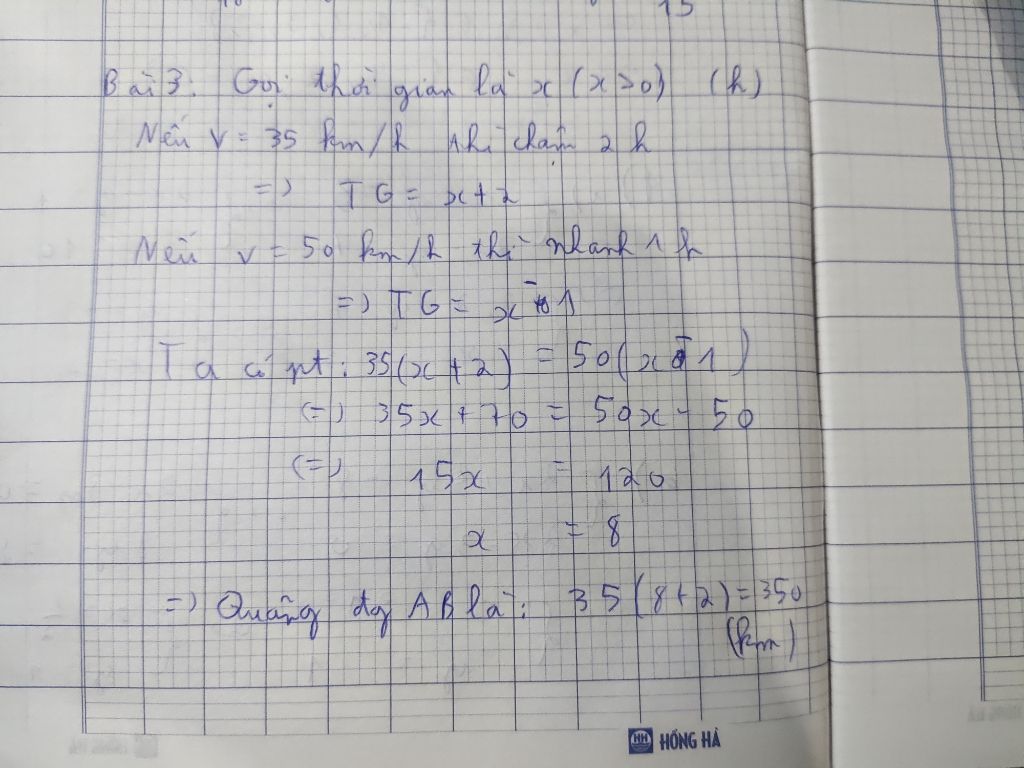 15
Bài 3: Gọi thời gian là x (x>0) (h)
Nếu v = 35 km/h thì chậm 2 h
=) TG = x+2
Nếu v = 50 km/h thì nhanh 1 h
=) TG = x - 1
Ta có pt: 35(x+2) = 50(x-1)
(=) 35x + 70 = 50x - 50
(=) 15x = 120
x = 8
=) Quãng đg AB là: 35(8+2) = 350
(km)
HH HỒNG HÀ